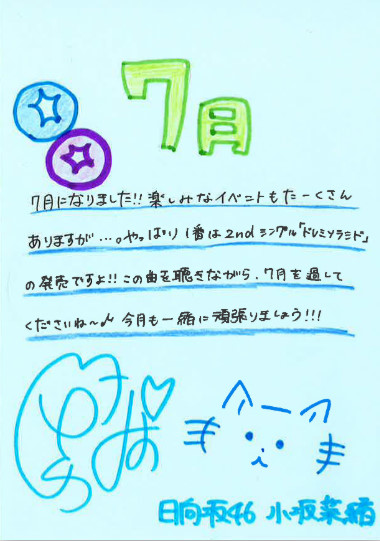 7月
7月になりました!!楽しみなイベントもたーくさん
ありますが…。やっぱり1番は2ndシングル「ドレミソラシド」
の発売ですよ!!この曲を聴きながら、7月を過して
くださいね〜♪今月も一緒に頑張りましょう!!!
日向坂46 小坂菜緒